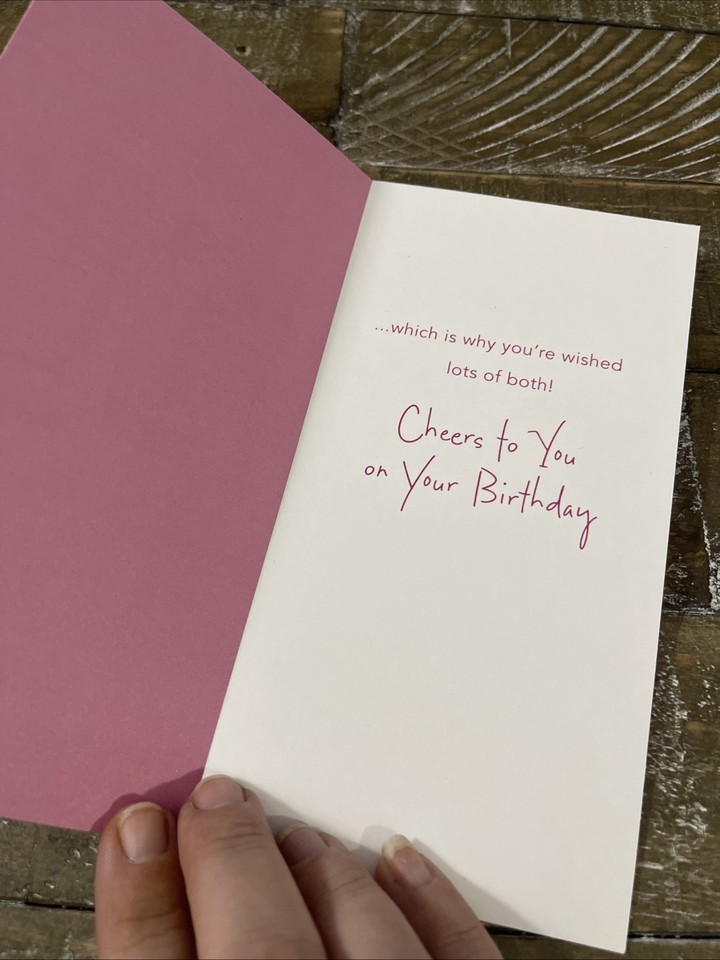 ...which is why you're wished
lots of both!
Cheers to You
on Your Birthday